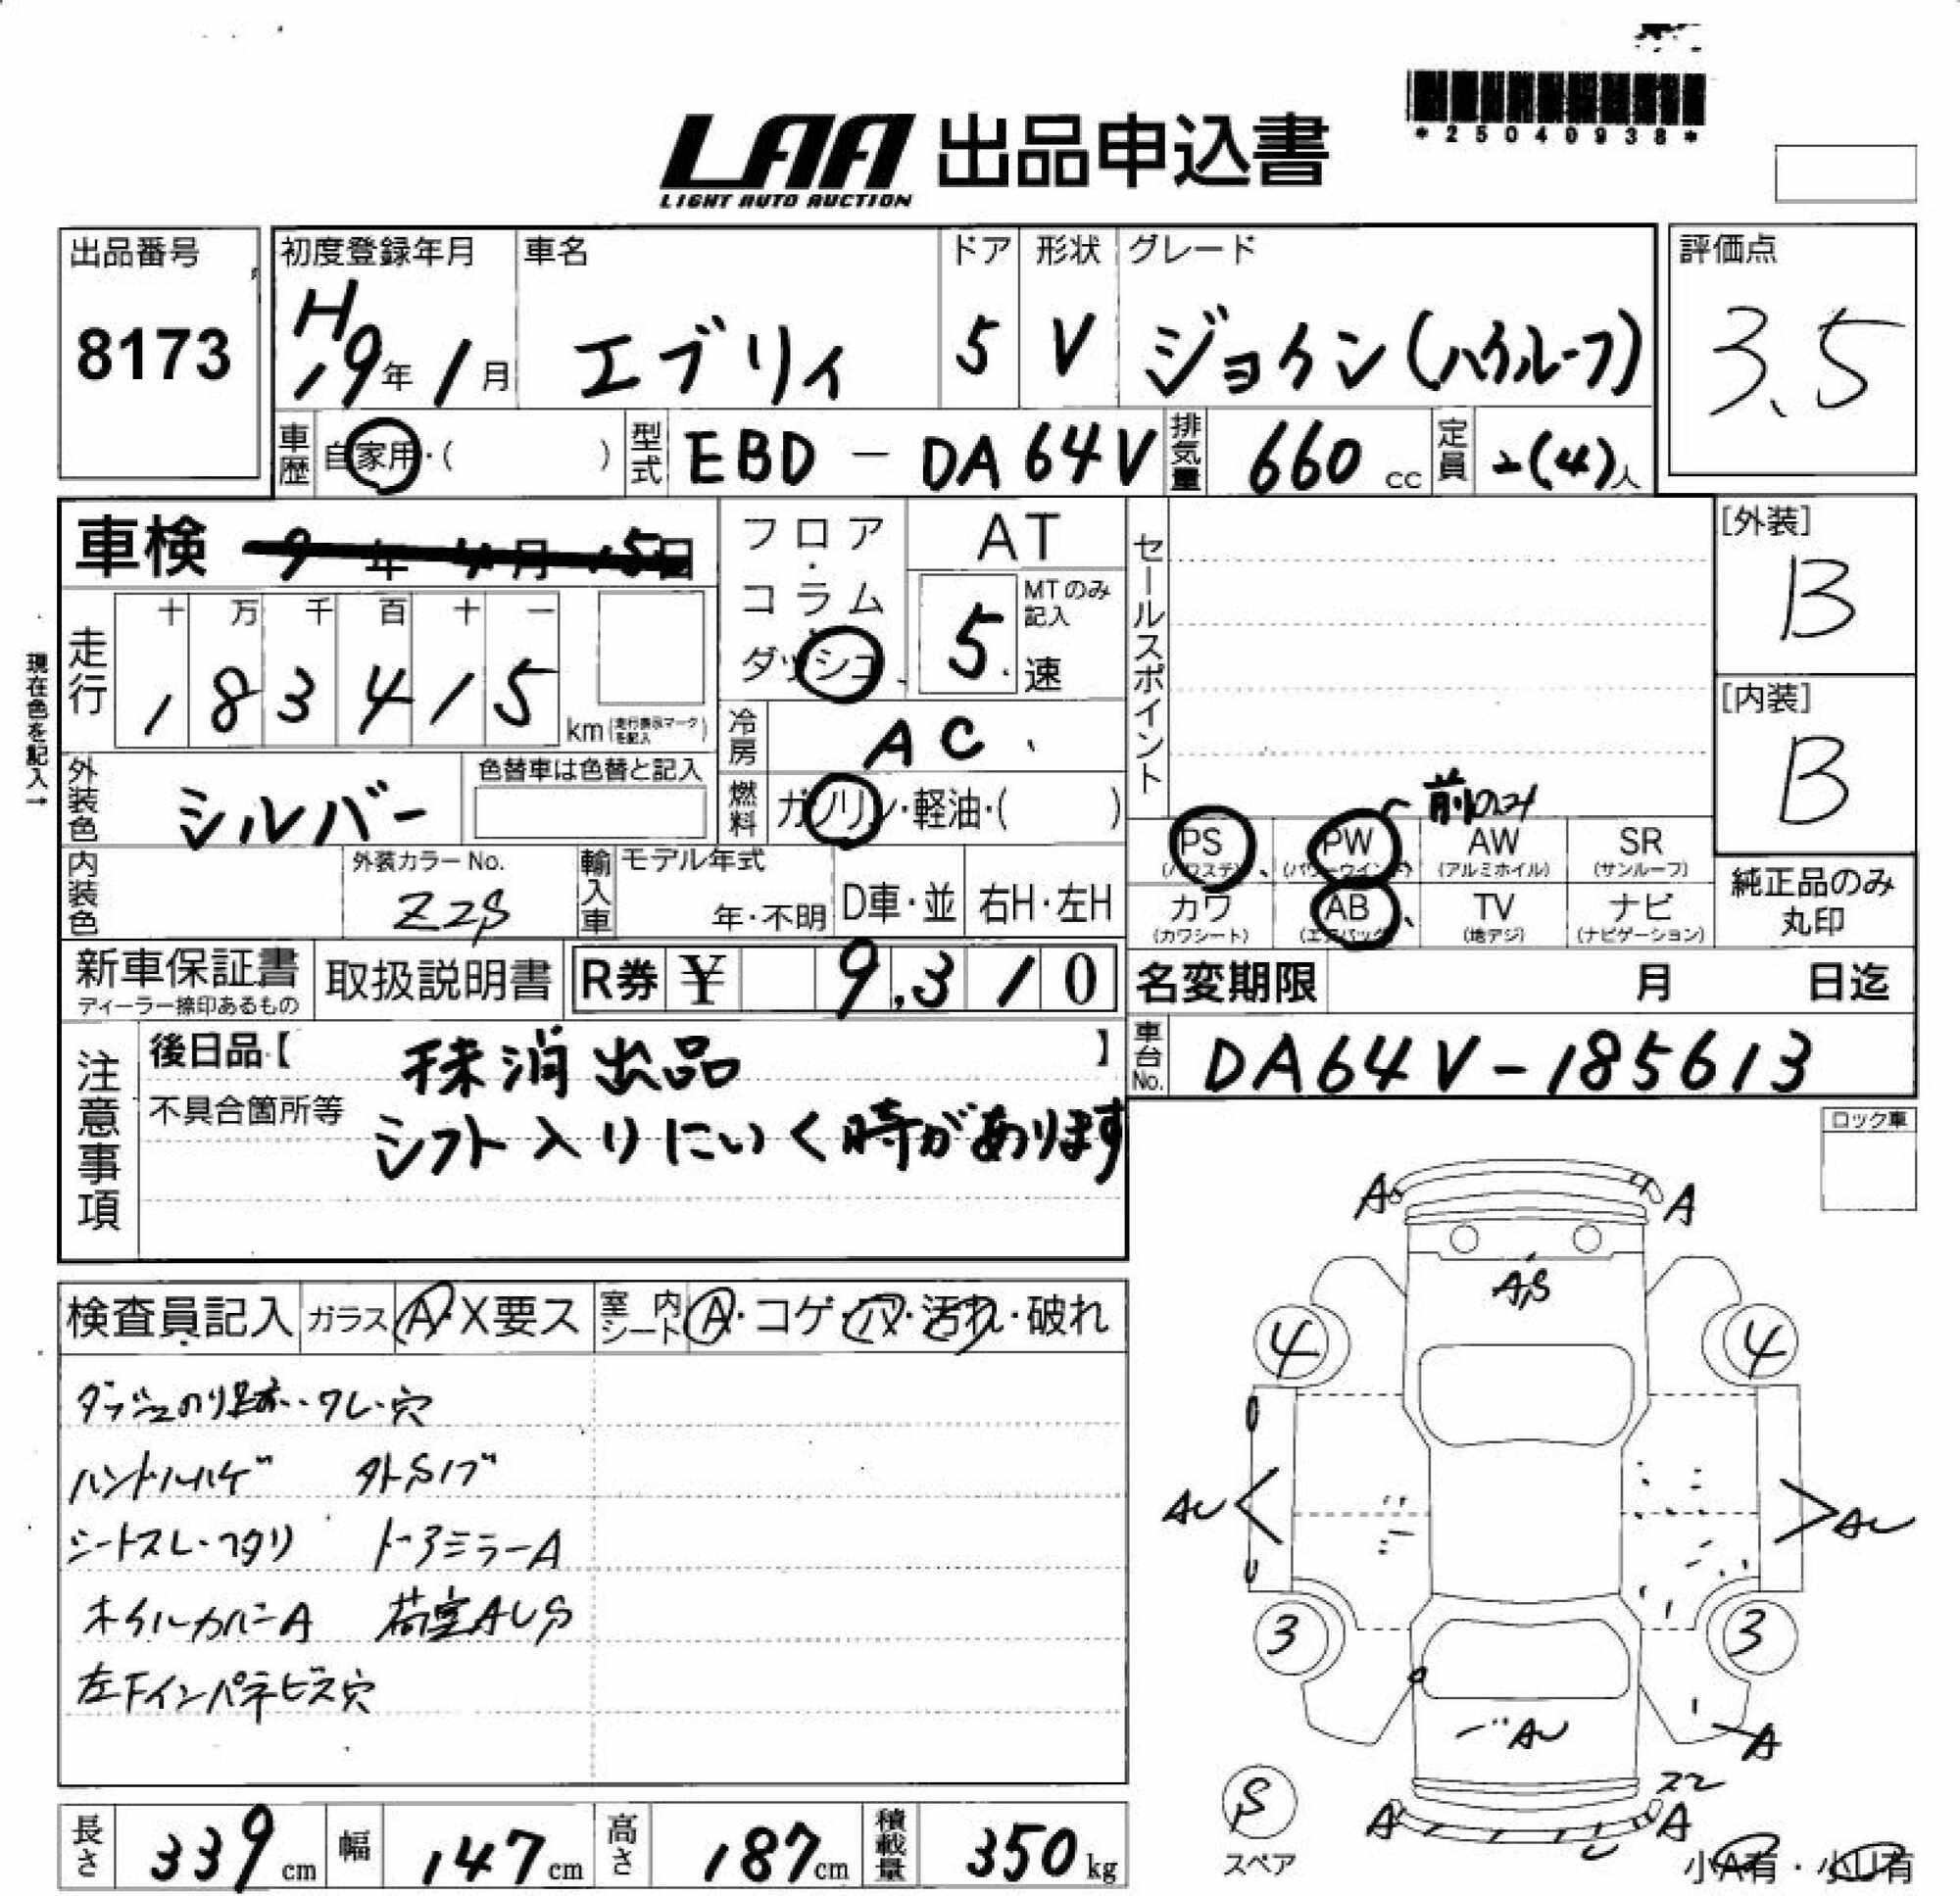 *25040938*
LAA 出品申込書
LIGHT AUTO AUCTION
出品番号 8173
初度登録年月 H19年1月
車名 エブリィ
ドア 5
形状 V
グレード ジョイン(ハイルーフ)
評価点 3.5
車歴 自家用・( )
型式 EBD-DA64V
排気量 660cc
定員 2(4)人
車検 9年4月15日
フロア・コラム・ダッシュ
AT
5速 MTのみ記入
セールスポイント
[外装] B
[内装] B
現在色を記入→
走行 十 万 千 百 十 一
183415 km(走行表示マークを記入)
冷房 AC
外装色 シルバー
色替車は色替と記入
燃料 ガソリン・軽油・( )
前のみ
PS (パワステ)
PW (パワーウインドー)
AW (アルミホイル)
SR (サンルーフ)
カワ (カワシート)
AB (エアバッグ)
TV (地デジ)
ナビ (ナビゲーション)
純正品のみ丸印
内装色
外装カラーNo. Z2S
輸入車
モデル年式 年・不明
D車・並
右H・左H
新車保証書 ディーラー捺印あるもの
取扱説明書
R券 ¥ 9,310
名変期限 月 日迄
注意事項
後日品【 抹消出品 】
車台No. DA64V-185613
不具合箇所等 シフト入りにいく時があります
ロック車
検査員記入
ガラス A・X要ス
室内シート A・コゲ・穴・汚れ・破れ
ダッシュのり跡・ワレ・穴
ハンドルハゲ
シートスレ・ヘタリ ドアミラーA
ホイルカバーA 荷室AUS
左下インパネビス穴
A A
A,S
4 4
AU AU
3 3
AU
A
A A
S
スペア
小A有・小U有
長さ 339cm
幅 147cm
高さ 187cm
積載量 350kg